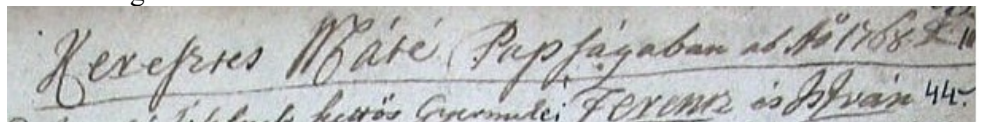 Keresztes Máté Papságaban ab Aõ 1768
kettős Gyermekei Ferencz és István 44.